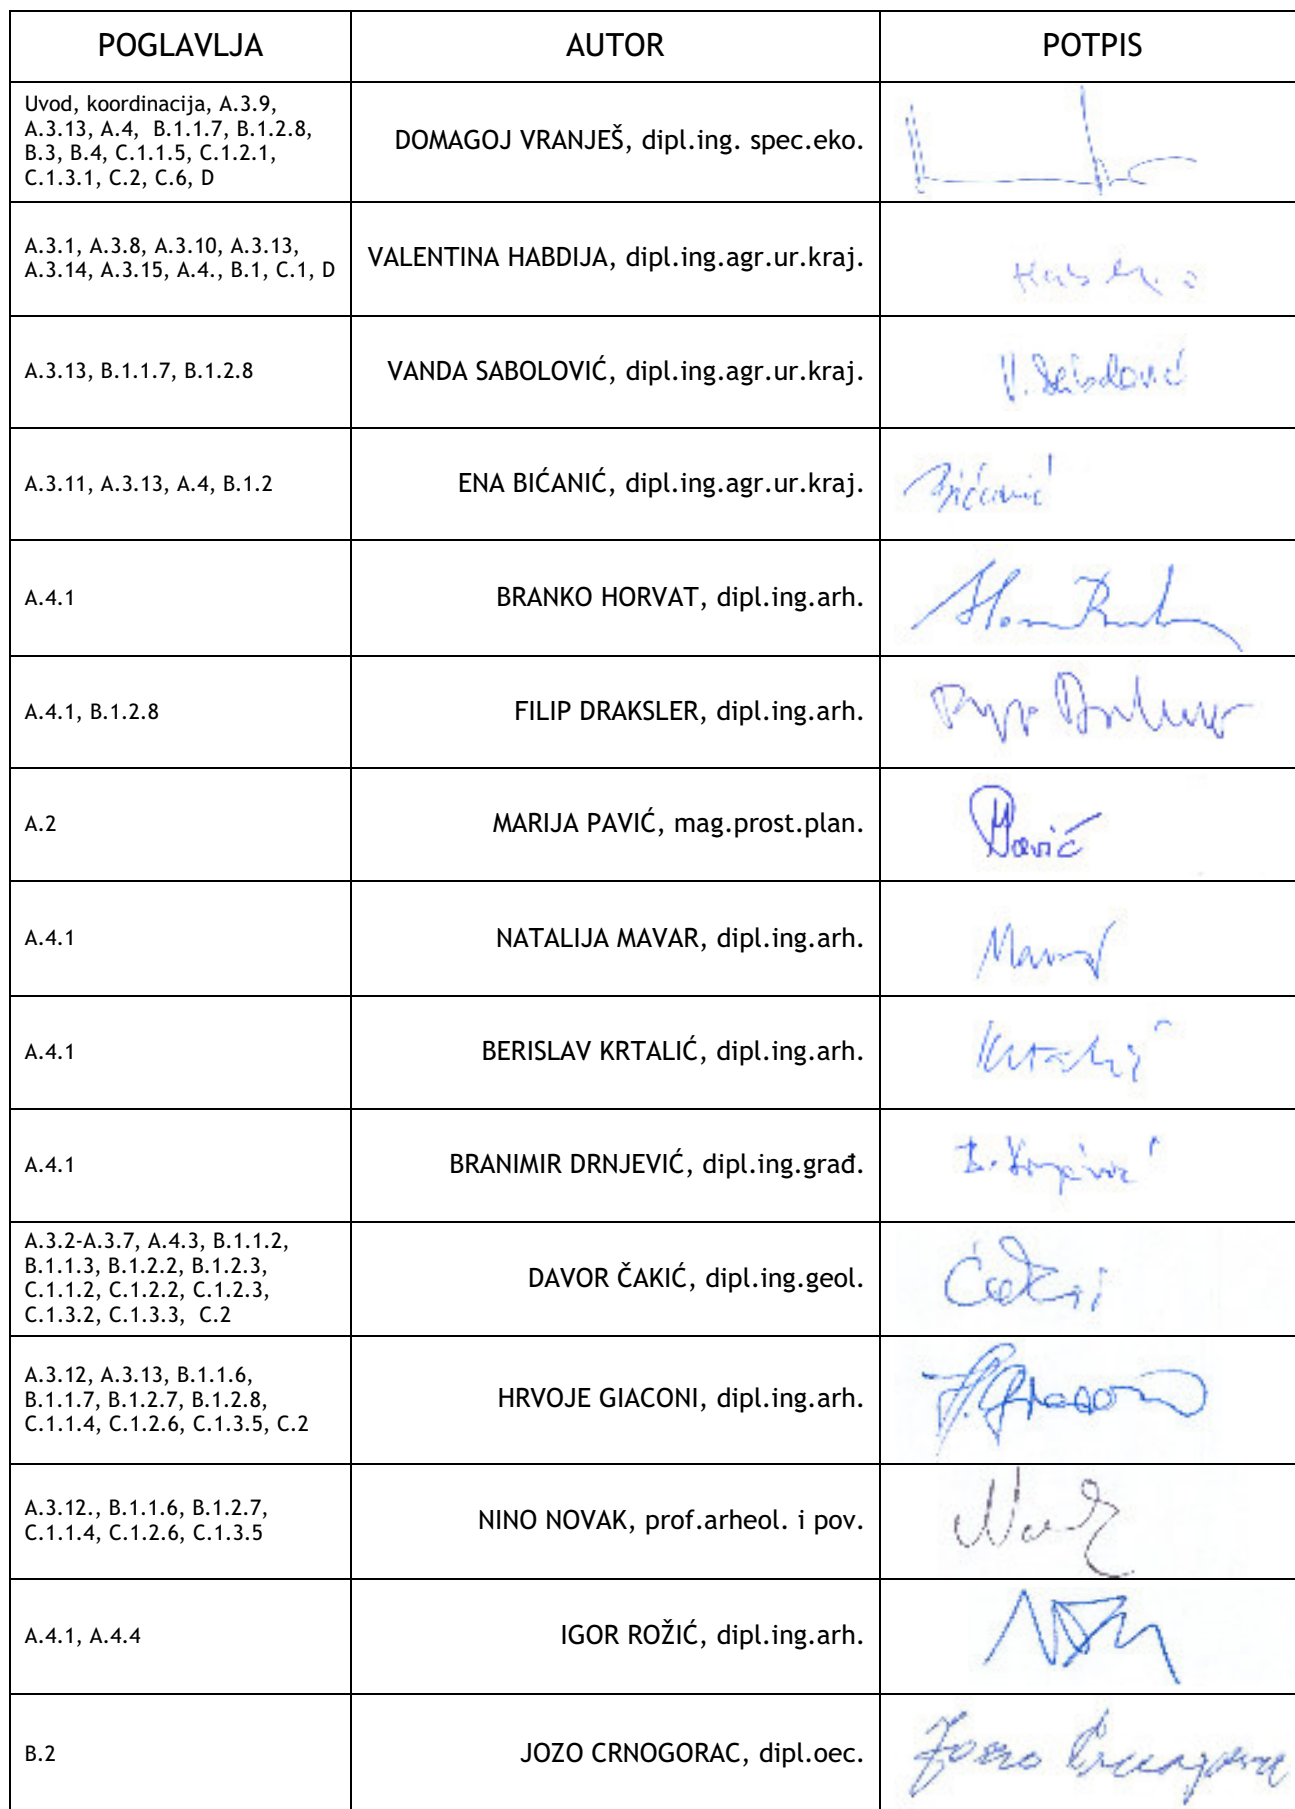 POGLAVLJA AUTOR POTPIS
Uvod, koordinacija, A.3.9,
A.3.13, A.4, B.1.1.7, B.1.2.8,
B.3, B.4, C.1.1.5, C.1.2.1,
C.1.3.1, C.2, C.6, D
DOMAGOJ VRANJEŠ, dipl.ing. spec.eko.
A.3.1, A.3.8, A.3.10, A.3.13,
A.3.14, A.3.15, A.4., B.1, C.1, D
VALENTINA HABDIJA, dipl.ing.agr.ur.kraj.
A.3.13, B.1.1.7, B.1.2.8
VANDA SABOLOVIĆ, dipl.ing.agr.ur.kraj.
V. Sabolović
A.3.11, A.3.13, A.4, B.1.2
ENA BIĆANIĆ, dipl.ing.agr.ur.kraj.
Bićanić
A.4.1
BRANKO HORVAT, dipl.ing.arh.
A.4.1, B.1.2.8
FILIP DRAKSLER, dipl.ing.arh.
A.2
MARIJA PAVIĆ, mag.prost.plan.
MPavić
A.4.1
NATALIJA MAVAR, dipl.ing.arh.
Mavar
A.4.1
BERISLAV KRTALIĆ, dipl.ing.arh.
Krtalić
A.4.1
BRANIMIR DRNJEVIĆ, dipl.ing.građ.
A.3.2-A.3.7, A.4.3, B.1.1.2,
B.1.1.3, B.1.2.2, B.1.2.3,
C.1.1.2, C.1.2.2, C.1.2.3,
C.1.3.2, C.1.3.3, C.2
DAVOR ČAKIĆ, dipl.ing.geol.
A.3.12, A.3.13, B.1.1.6,
B.1.1.7, B.1.2.7, B.1.2.8,
C.1.1.4, C.1.2.6, C.1.3.5, C.2
HRVOJE GIACONI, dipl.ing.arh.
H. Giaconi
A.3.12., B.1.1.6, B.1.2.7,
C.1.1.4, C.1.2.6, C.1.3.5
NINO NOVAK, prof.arheol. i pov.
A.4.1, A.4.4
IGOR ROŽIĆ, dipl.ing.arh.
B.2
JOZO CRNOGORAC, dipl.oec.
Jozo Crnogorac